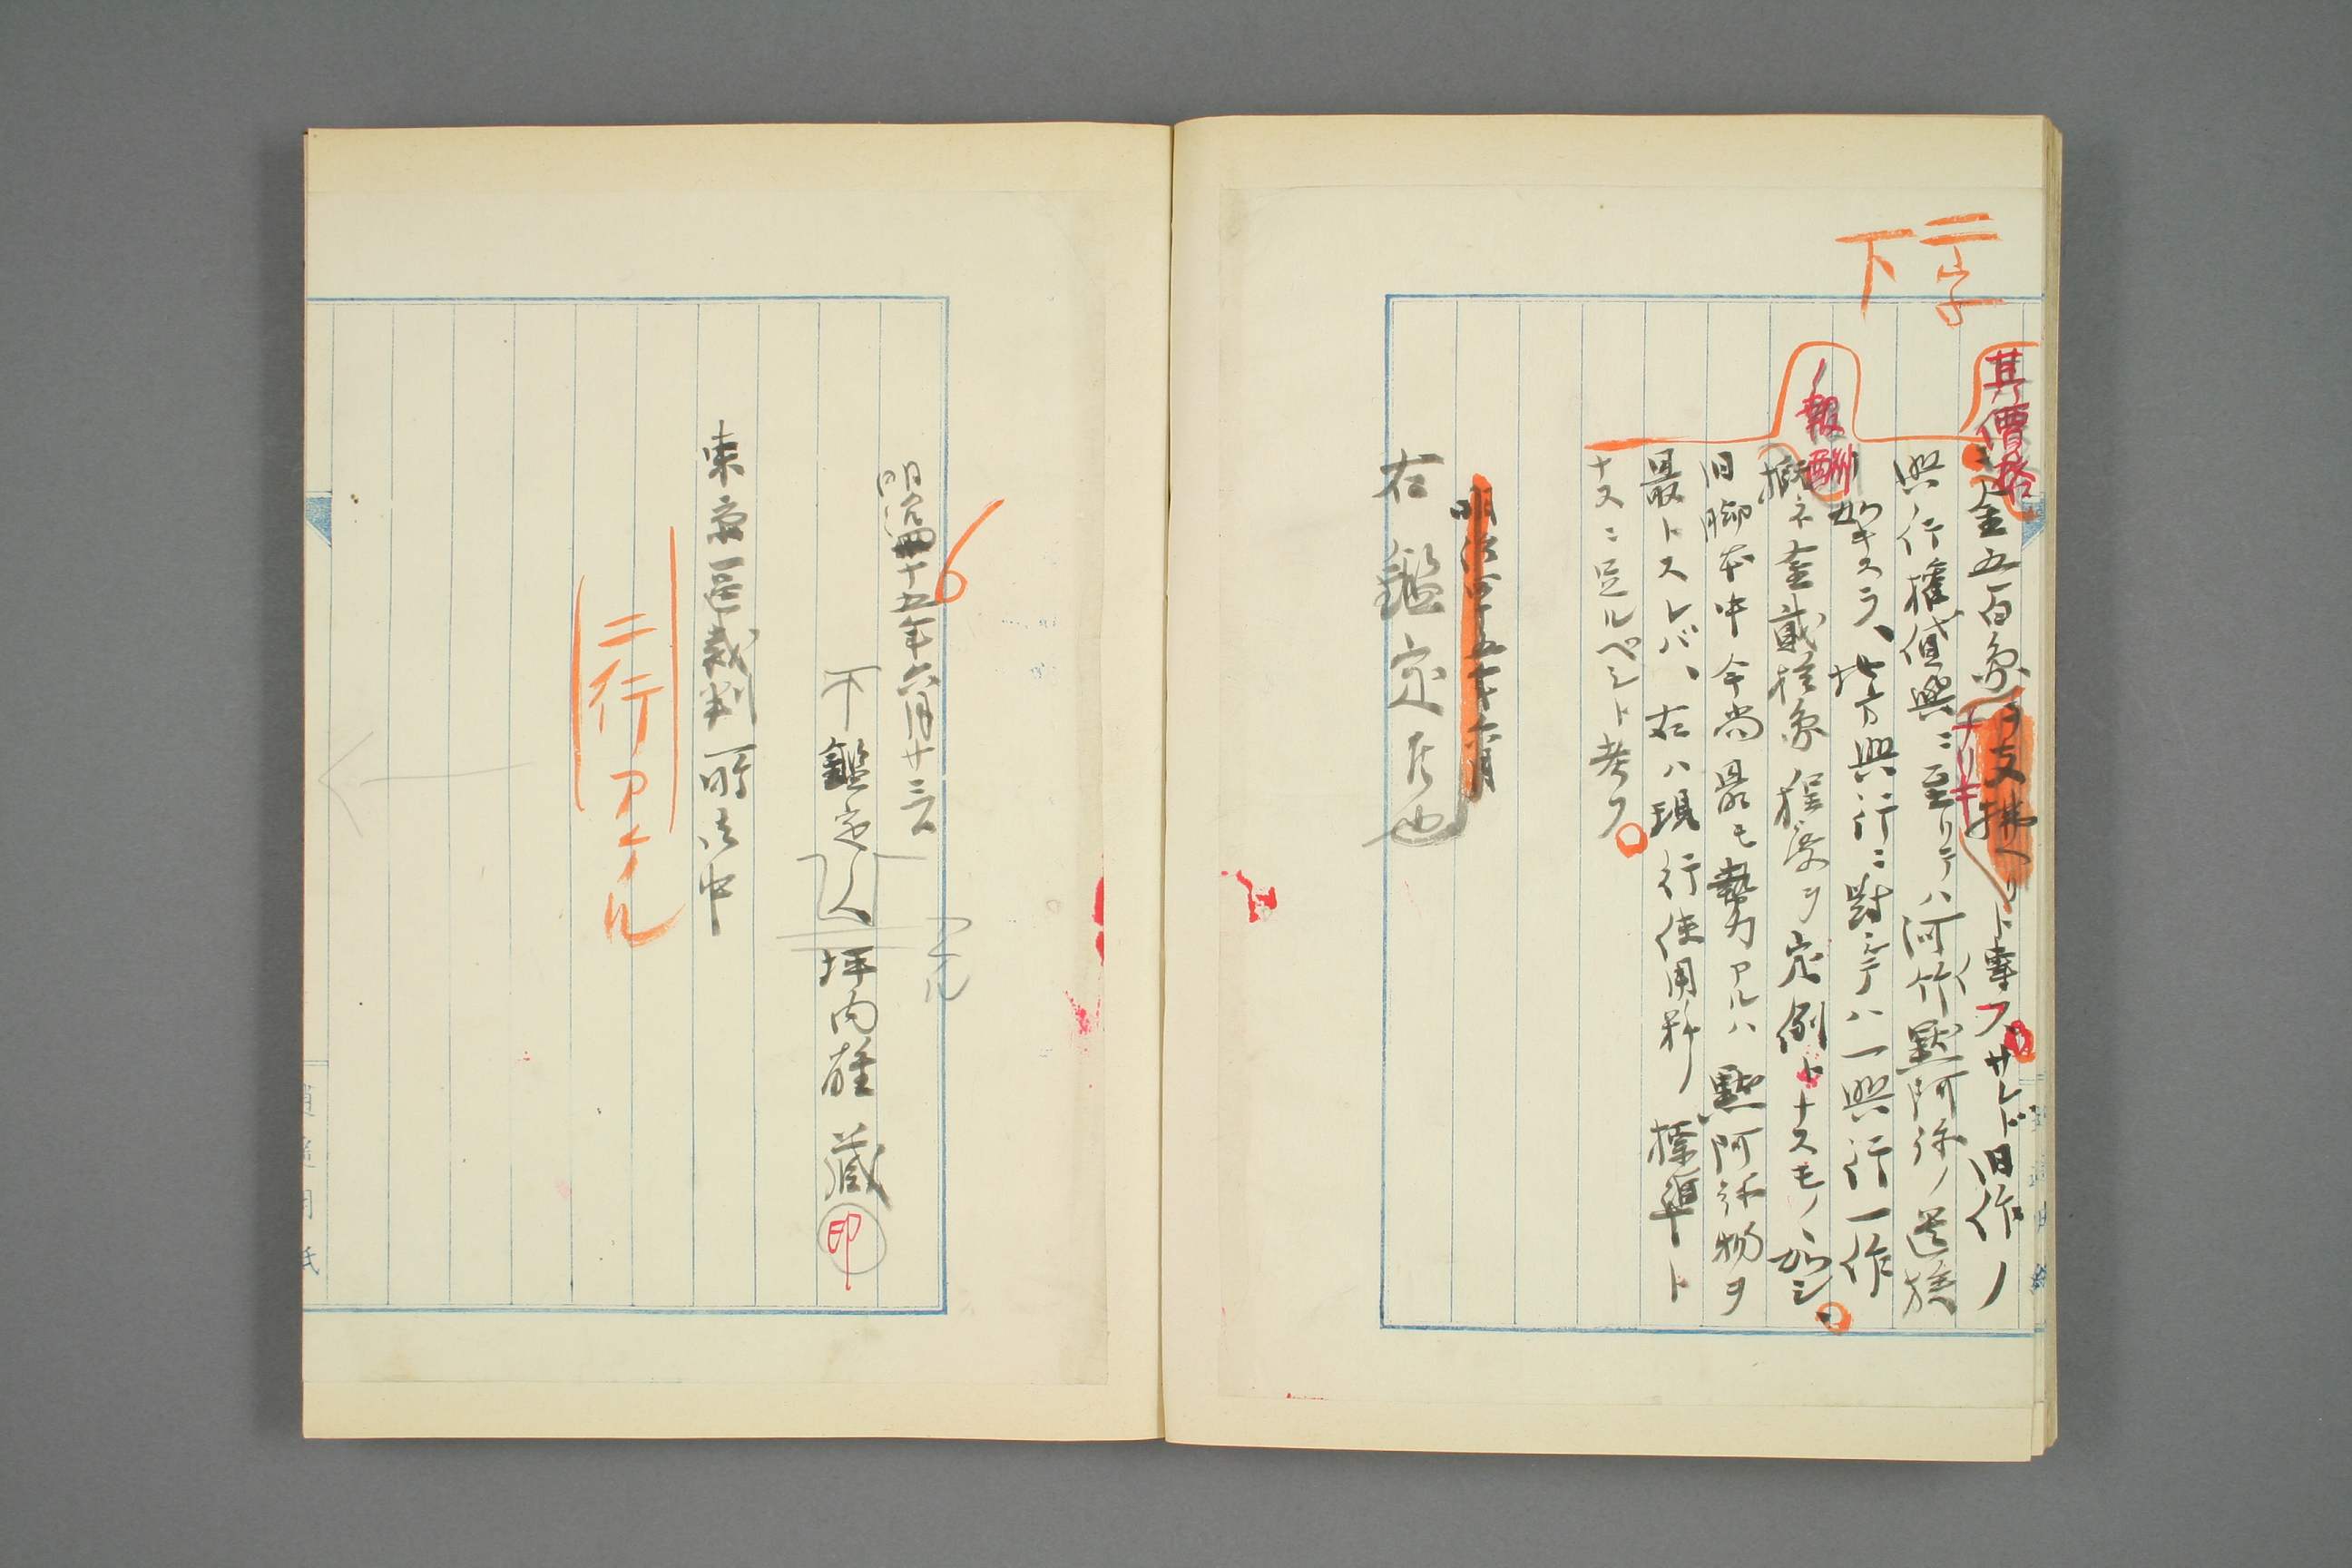 二字
下
其價格
金五百円ヲ支拂ヘリト事フサレド旧作ノ
ナリキ
興行権貸興ニ至リテハ河竹黙阿弥ノ遺族
ノ報酬
如キスラ、地方興行ニ對シテハ一興行一作
概ネ金貳拾円程度ヲ定例トナスモノヽ如シ。
旧脚本中今尚最モ勢力アルハ黙阿弥物ヲ
最トスレバ、右ハ現行使用料ノ標準ト
ナスニ足ルベシト考フ
明治四十五年六月
右鑑定候也
明治四十五年六月廿三日
下
鑑定人 坪内雄蔵 印
東京區裁判所御中
二行アケル